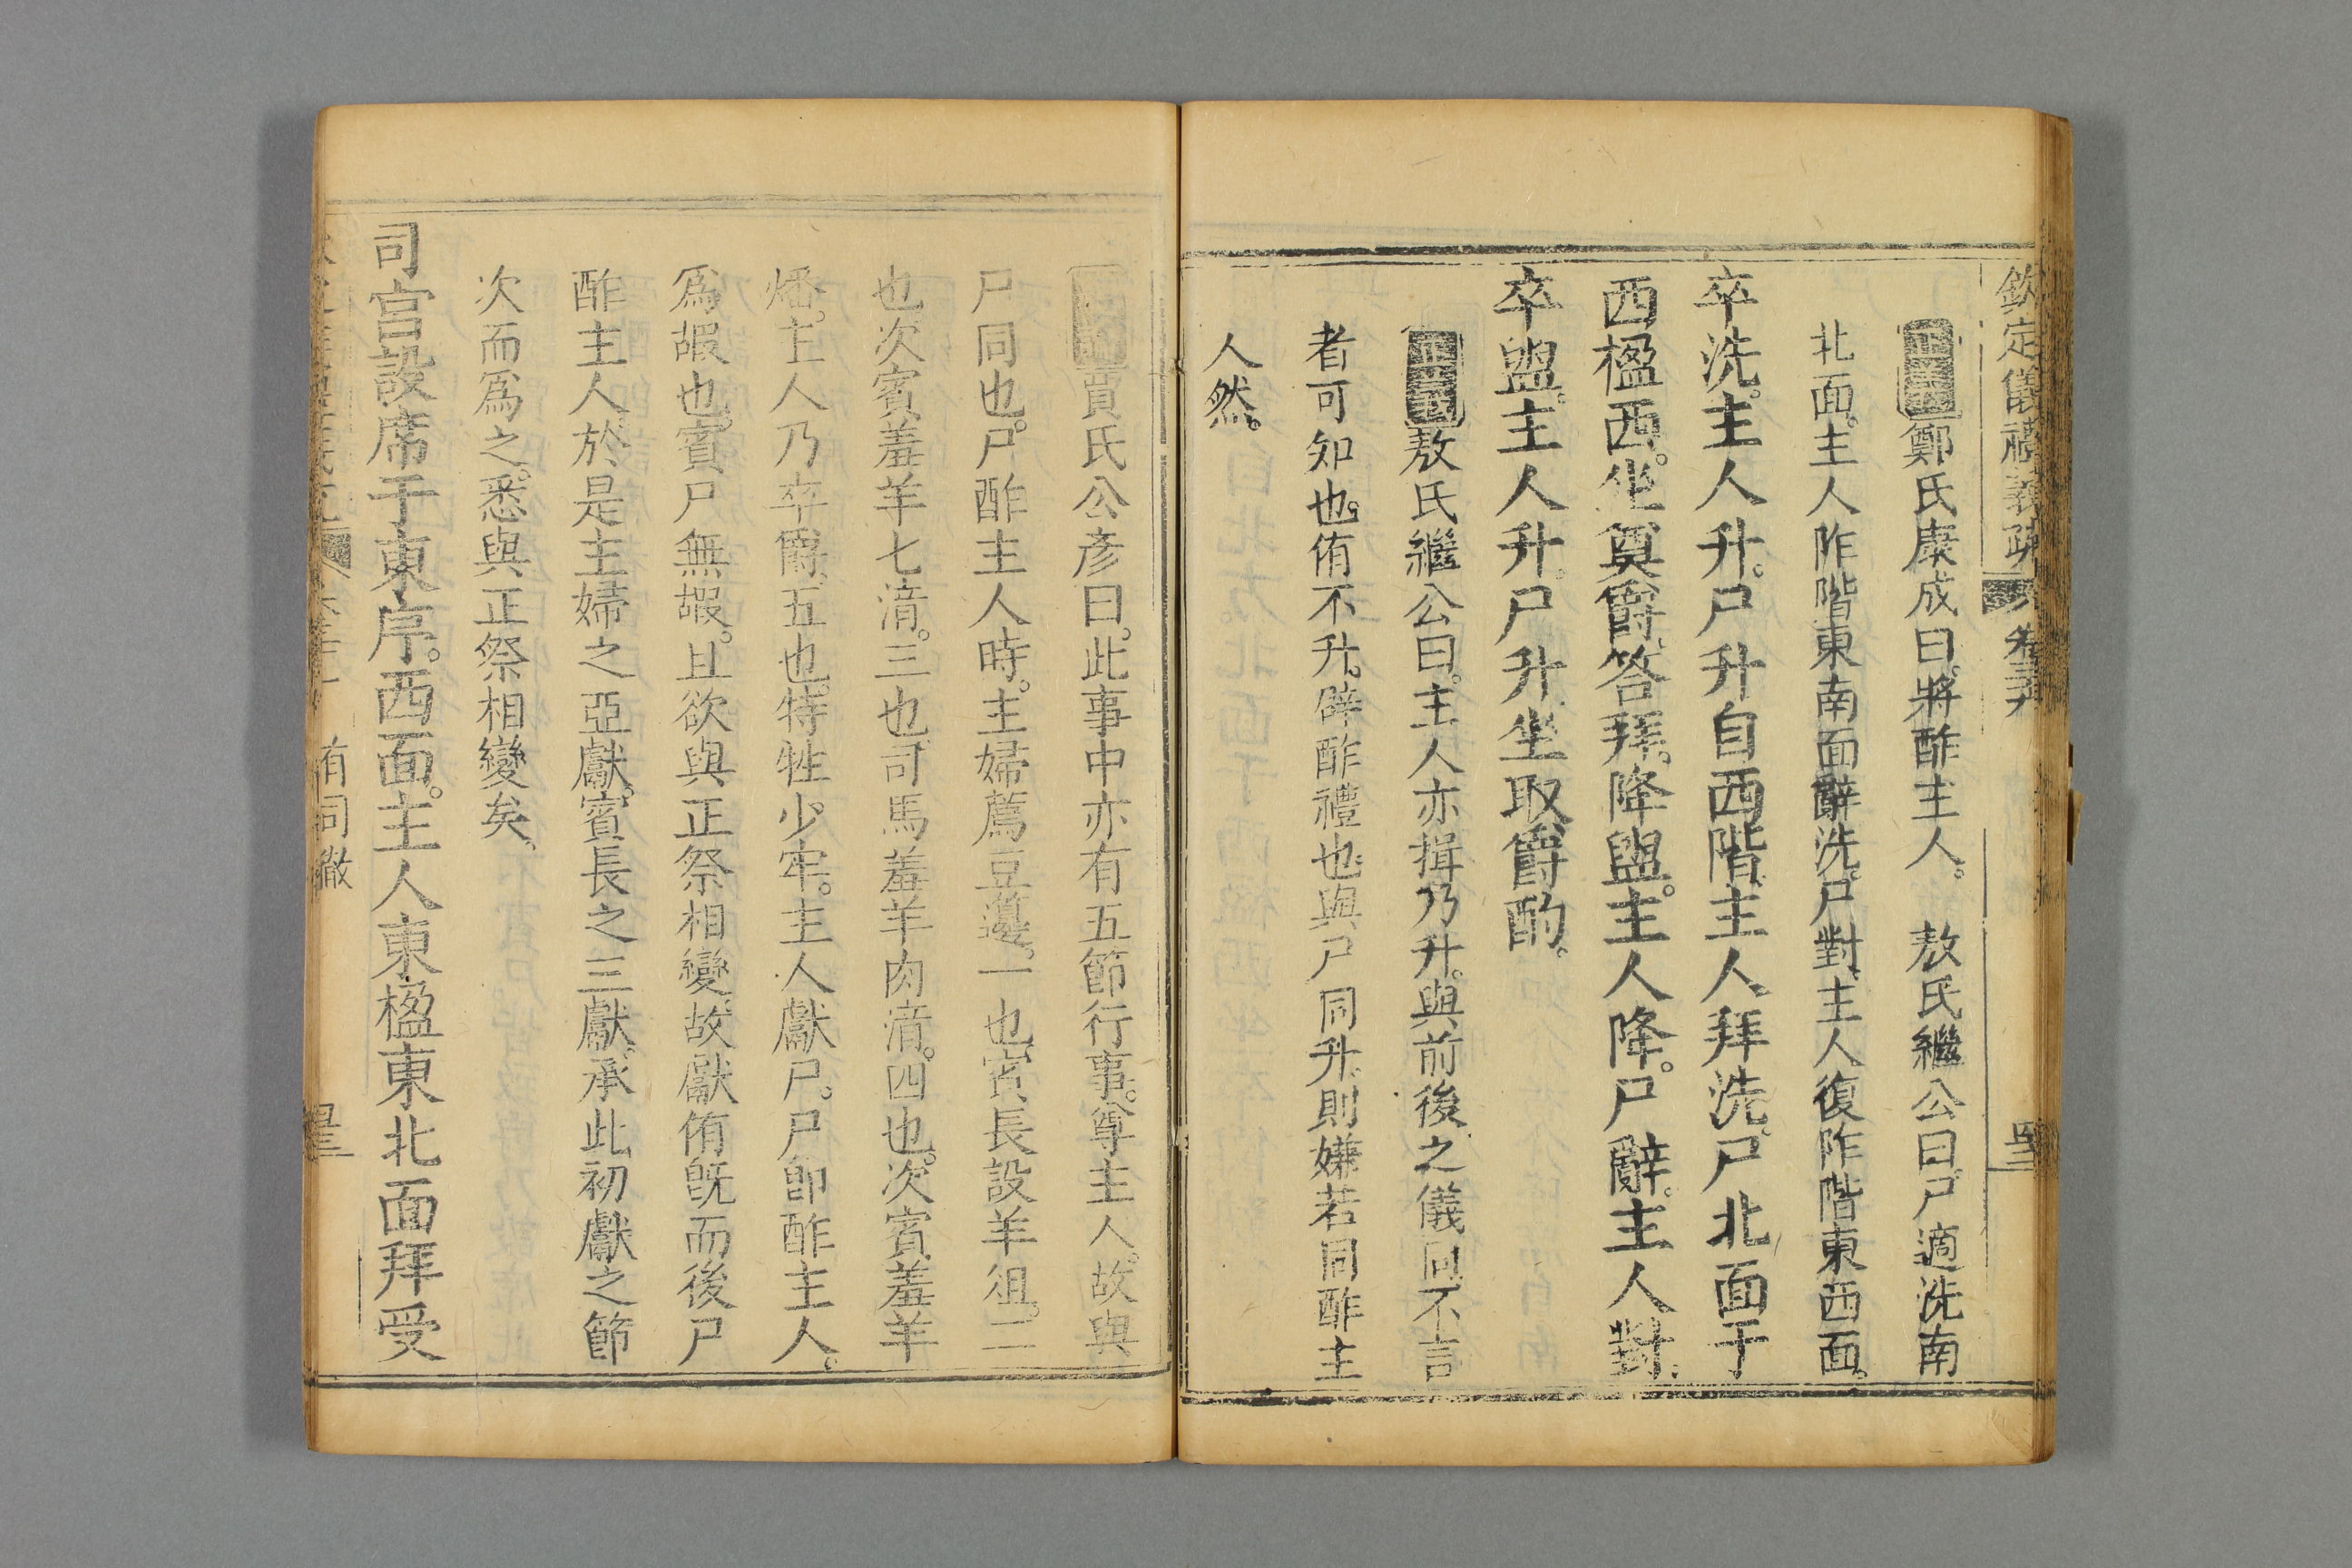 欽定儀禮義疏 卷三十九
鄭氏康成曰。將酢主人。 敖氏繼公曰。尸適洗南
北面。主人阼階東南面辭洗。尸對。主人復阼階東西面。
卒洗。主人升。尸升自西階。主人拜洗。尸北面于
西楹西。坐奠爵。答拜。降盥。主人降。尸辭。主人對。
卒盥。主人升。尸升。坐取爵酌。
敖氏繼公曰。主人亦揖乃升。與前後之儀同。不言
者可知也。侑不升。辟酢禮也。與尸同升。則嫌若同酢主
人然。
賈氏公彥曰。此事中亦有五節行事。尊主人。故與
尸同也。尸酢主人時。主婦薦豆籩。一也。賓長設羊俎。二
也。次賓羞羊七湆。三也。司馬羞羊肉湆。四也。次賓羞羊
燔。主人乃卒爵。五也。特牲少牢。主人獻尸。尸卽酢主人。
爲嘏也。賓尸無嘏。且欲與正祭相變。故獻侑旣而後尸
酢主人。於是主婦之亞獻。賓長之三獻。承此初獻之節
次而爲之。悉與正祭相變矣。
司宮設席于東序。西面。主人東楹東北面拜受
有司徹